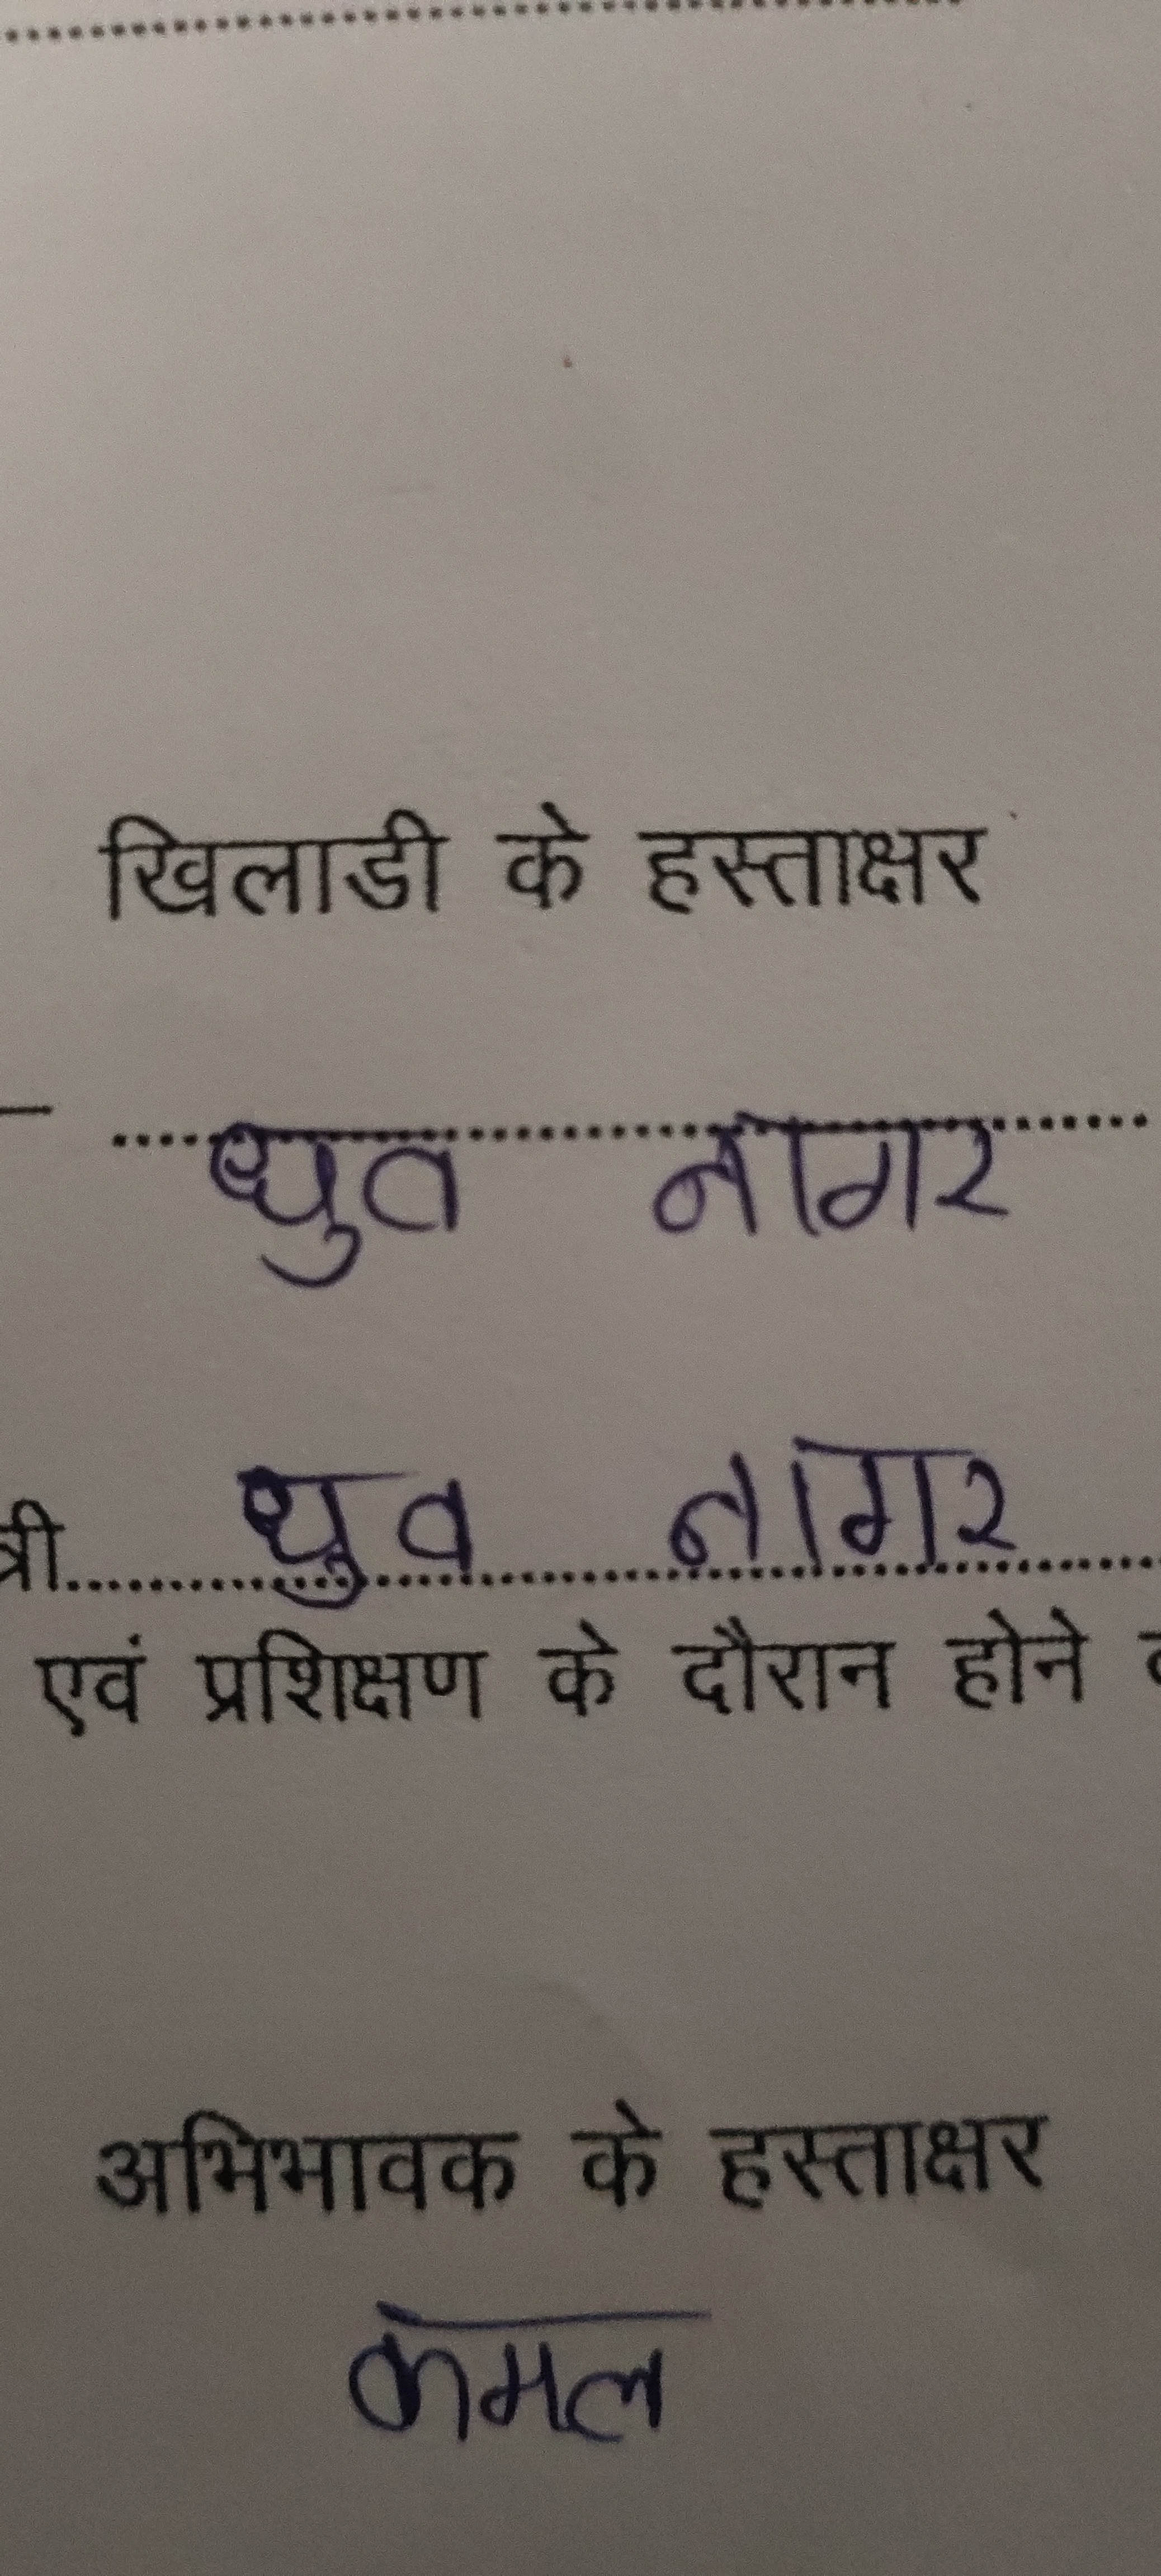 खिलाडी के हस्ताक्षर
धुव नागर
त्री धुव नागर
एवं प्रशिक्षण के दौरान होने
अभिभावक के हस्ताक्षर
कमल